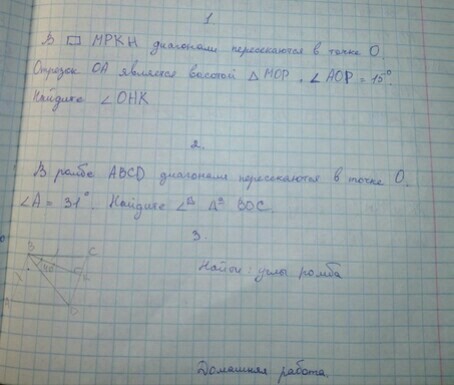 1
В □ МРКН диагонали пересекаются в точке О.
Отрезок ОА является высотой △ МОР, ∠ АОР = 15°.
Найдите ∠ ОНК
2.
В ромбе ABCD диагонали пересекаются в точке О.
∠А = 31°. Найдите ∠В ВОС.
3.
B C
Найти: углы ромба
D
Домашняя работа.